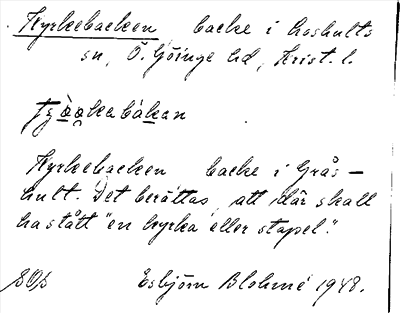 Kyrkebacken, backe i Loshults
sn, Ö. Göinge hd, Krist. l.
Kyrkebacken backe i Grås-
hult. Det berättas, att där skall
ha stått "en kyrka eller stapel."
Esbjörn Blohmé 1948.